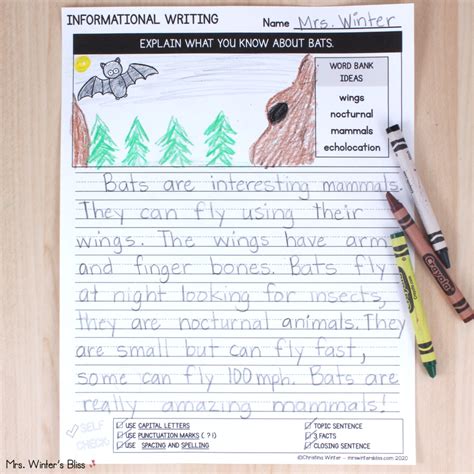 INFORMATIONAL WRITING Name Mrs. Winter
EXPLAIN WHAT YOU KNOW ABOUT BATS.
WORD BANK
IDEAS
wings
nocturnal
mammals
echolocation
Bats are interesting mammals.
They can fly using their
wings. The wings have arm
and finger bones. Bats fly
at night looking for insects,
they are nocturnal animals. They
are small but can fly fast,
some can fly 100 mph. Bats are
really amazing mammals!
SELF
CHECK
USE CAPITAL LETTERS
USE PUNCTUATION MARKS ( . ? ! )
USE SPACING AND SPELLING
TOPIC SENTENCE
3 FACTS
CLOSING SENTENCE
©Christina Winter - mrswintersbliss.com 2020
Mrs. Winter's Bliss
Crayola